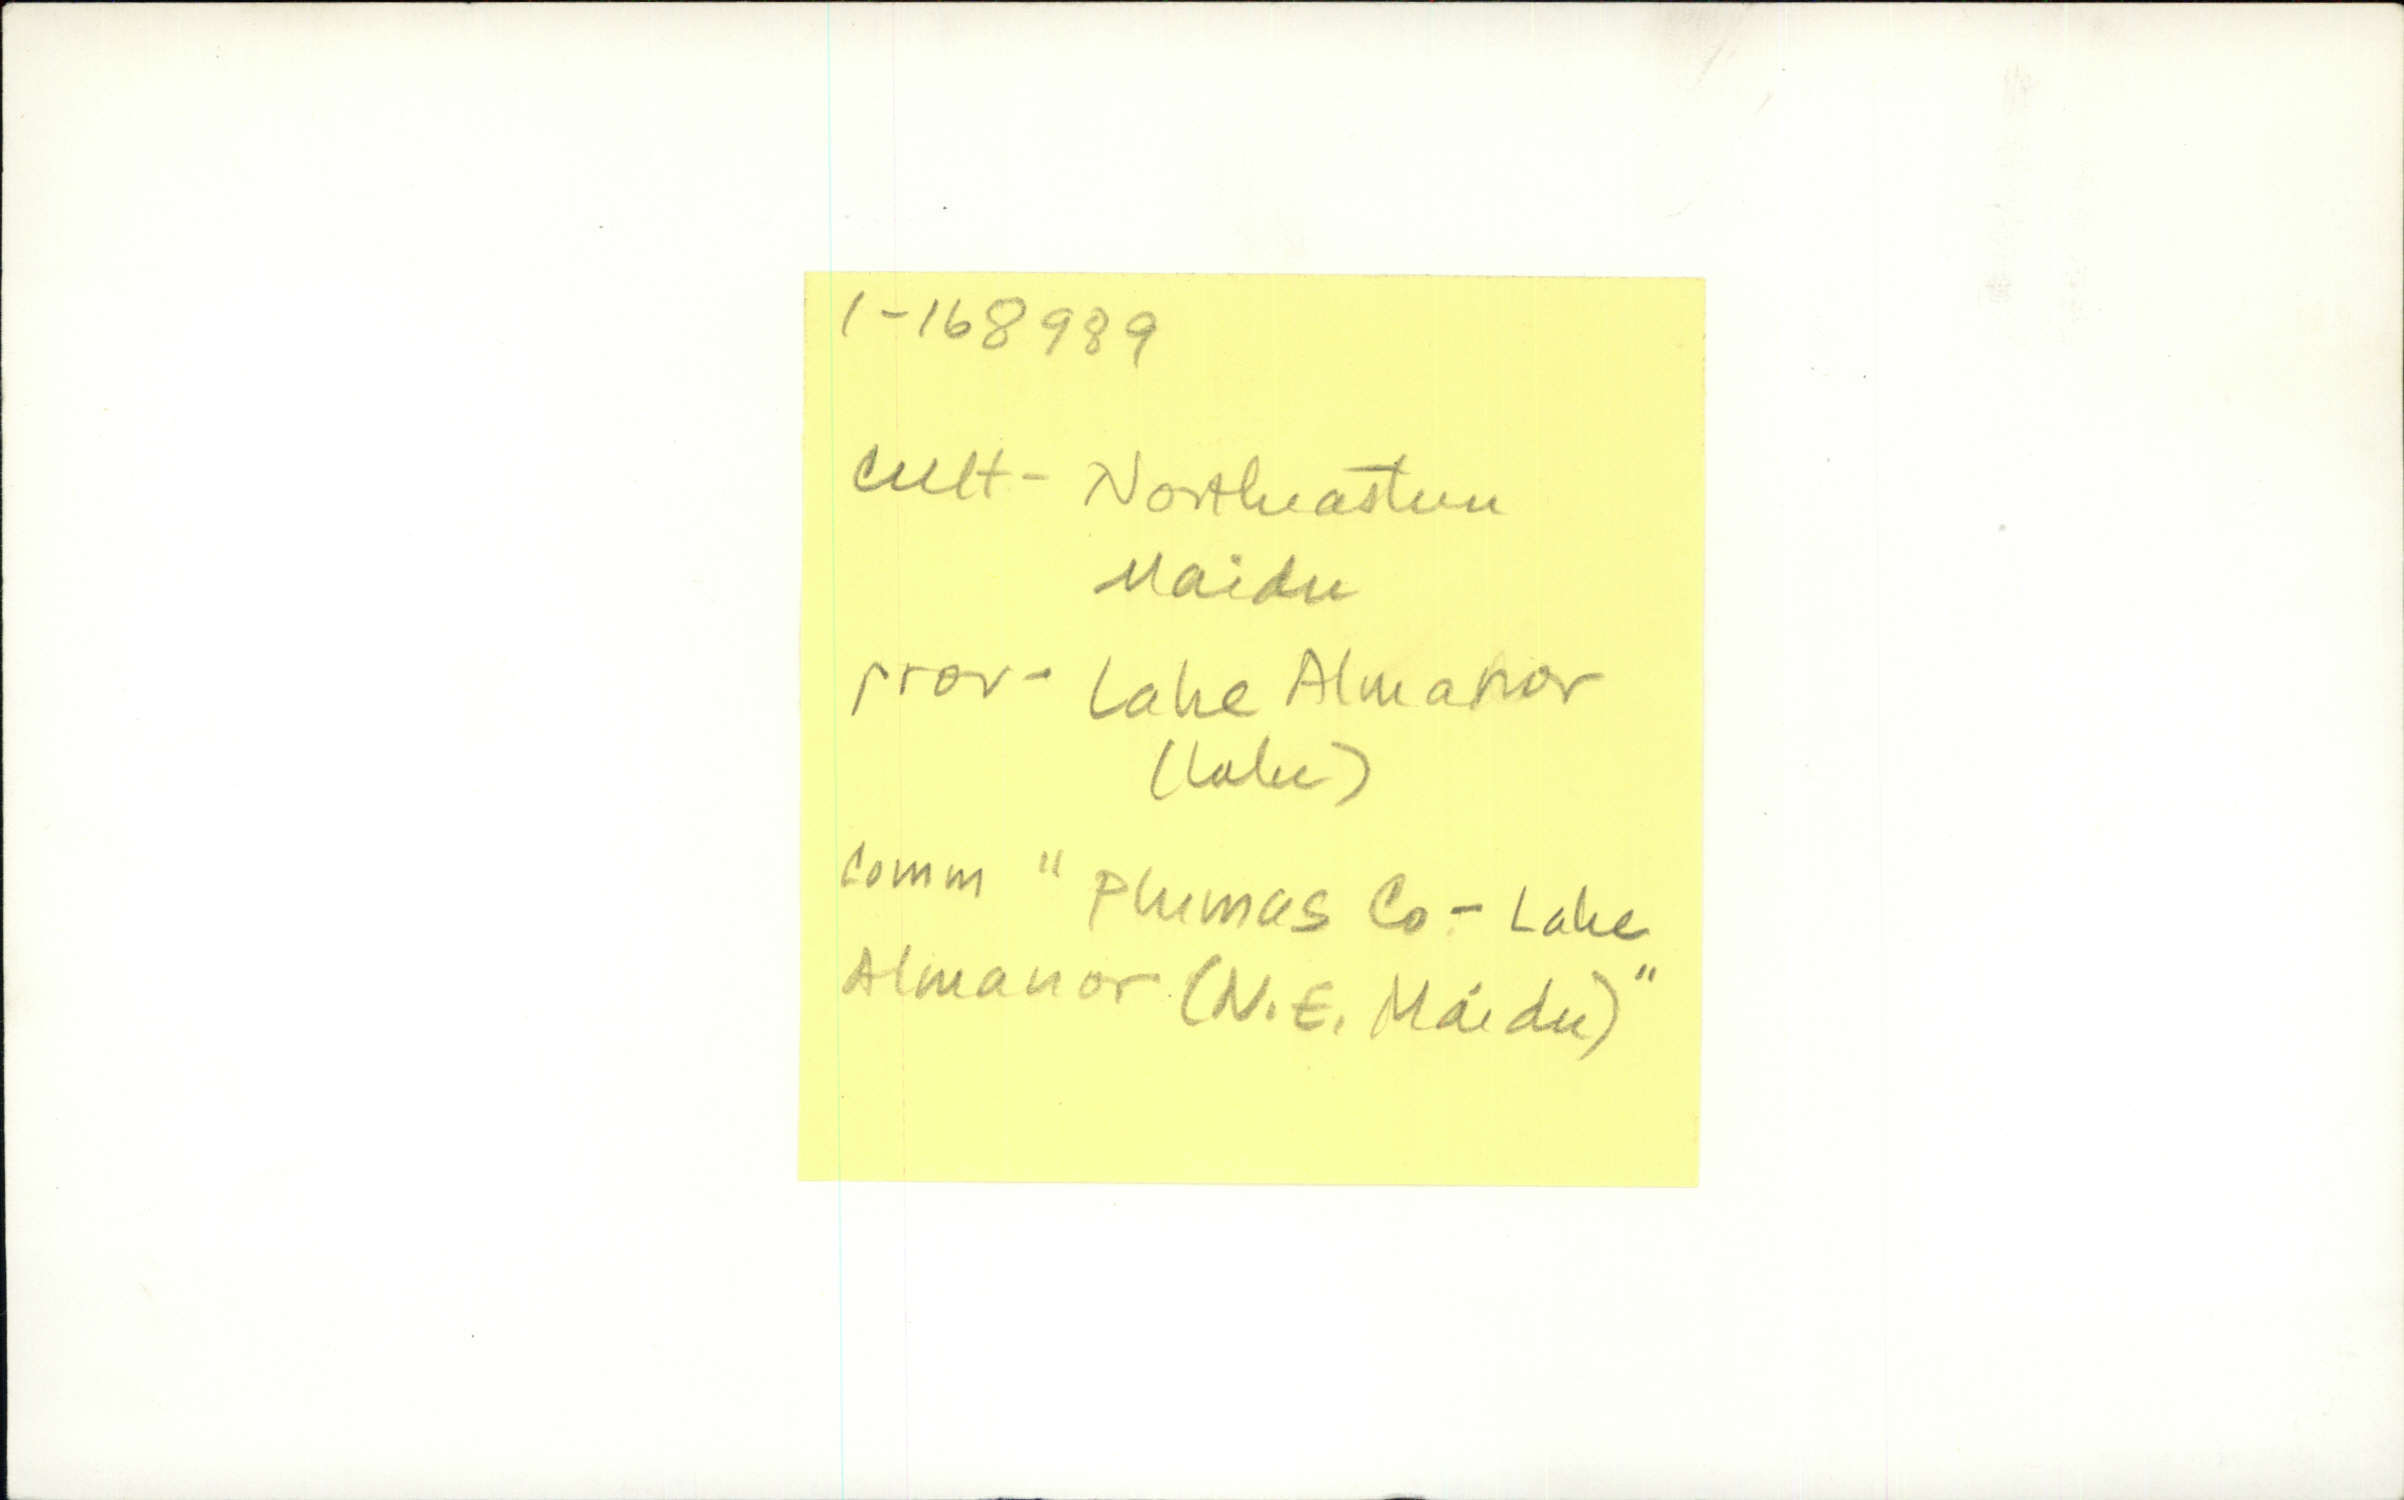 1-168989
cult- Northeastern
Maidu
prov- Lake Almanor
(lake)
Comm " Plumas Co- Lake
Almanor (N.E. Maidu)"